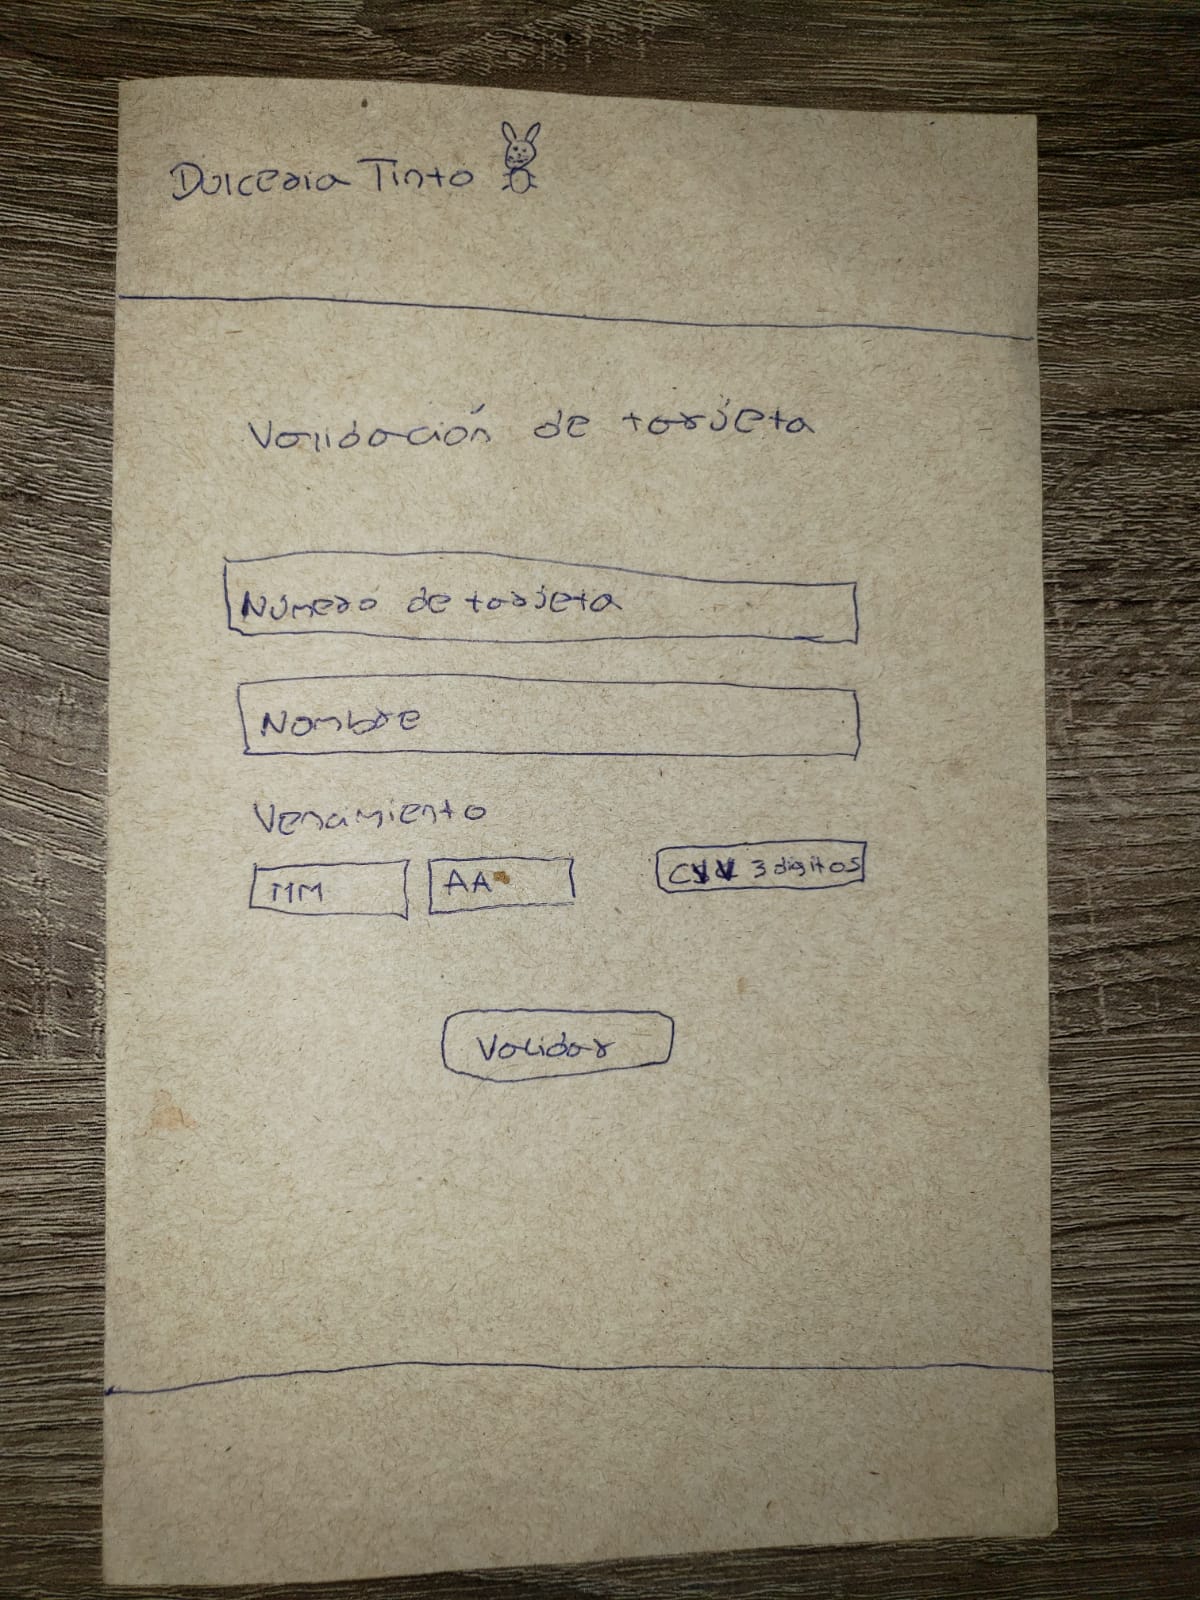 Dulceria Tinto
Validación de tarjeta
Número de tarjeta
Nombre
Vencimiento
MM AA CVV 3 digitos
Validar